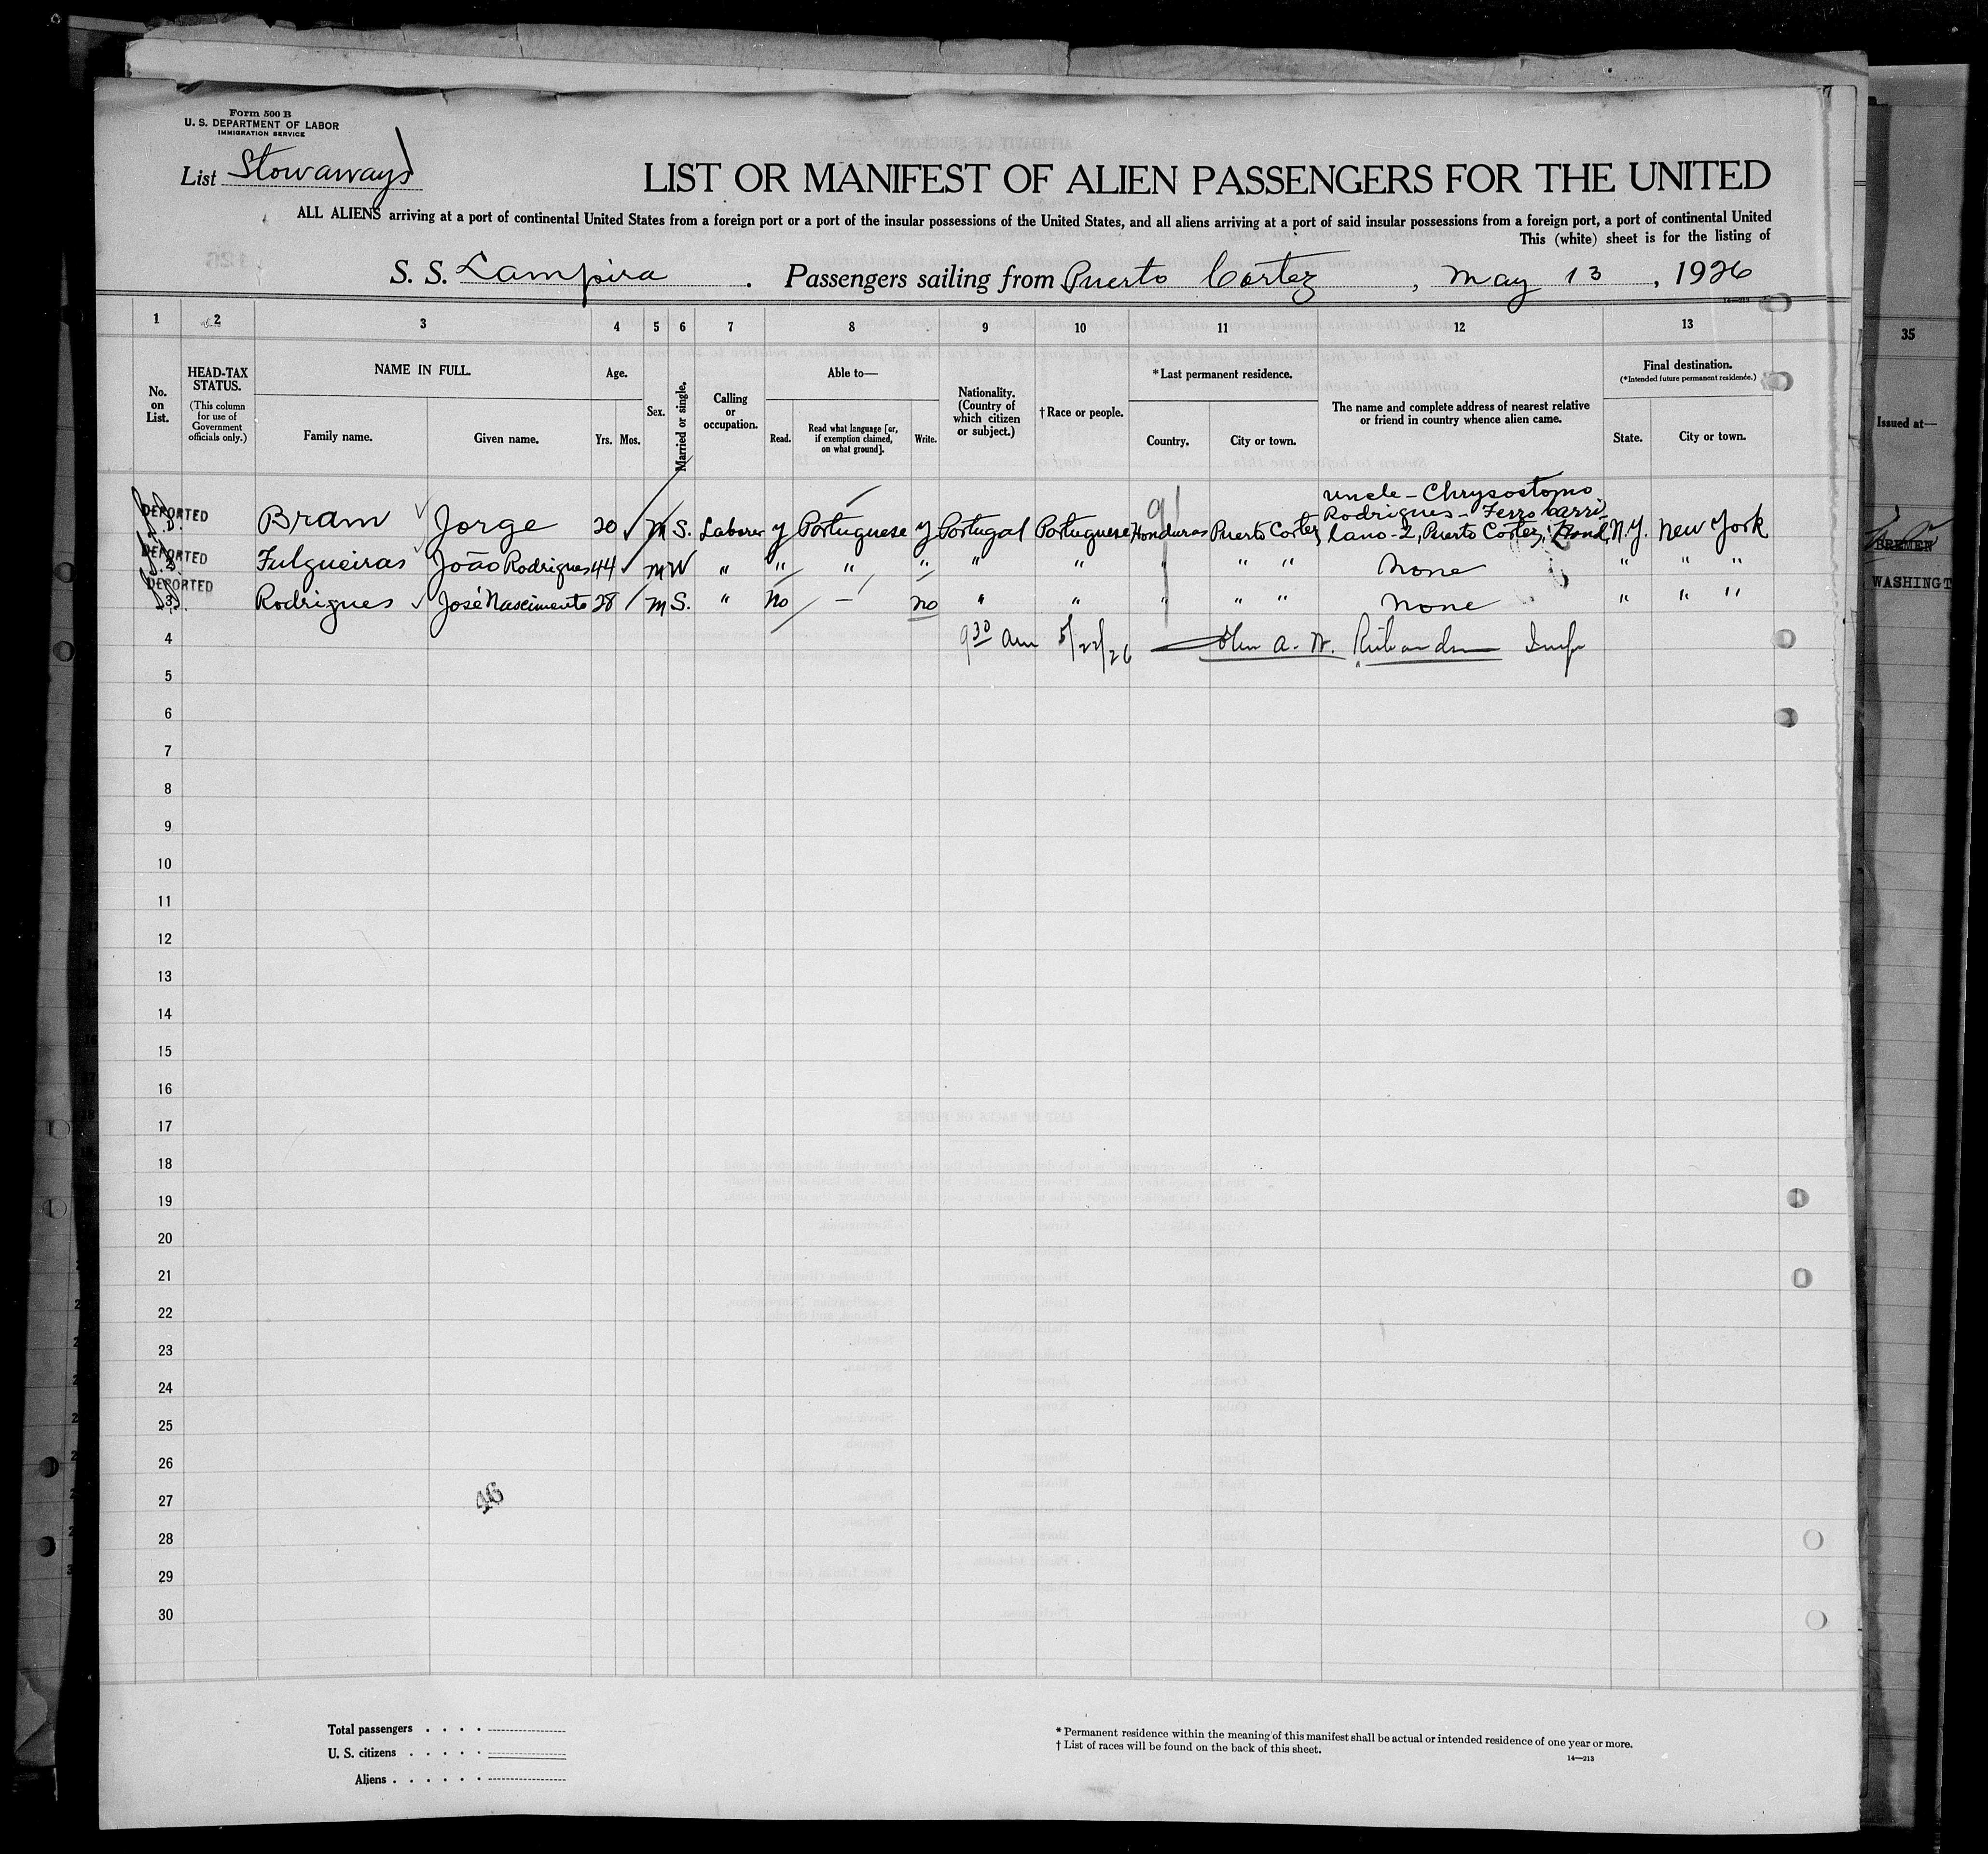 Form 500 B
U. S. DEPARTMENT OF LABOR
IMMIGRATION SERVICE
List Stowaways
LIST OR MANIFEST OF ALIEN PASSENGERS FOR THE UNITED
ALL ALIENS arriving at a port of continental United States from a foreign port or a port of the insular possessions of the United States, and all aliens arriving at a port of said insular possessions from a foreign port, a port of continental United
This (white) sheet is for the listing of
S. S. Lampira . Passengers sailing from Puerto Cortez , May 13 , 1926
14—213
1 2 3 4 5 6 7 8 9 10 11 12 13
No. on List.
HEAD-TAX STATUS.
(This column for use of Government officials only.)
NAME IN FULL.
Family name. Given name.
Age.
Yrs. Mos.
Sex.
Married or single.
Calling or occupation.
Able to—
Read. Read what language [or, if exemption claimed, on what ground]. Write.
Nationality. (Country of which citizen or subject.)
† Race or people.
*Last permanent residence.
Country. City or town.
The name and complete address of nearest relative or friend in country whence alien came.
Final destination.
(*Intended future permanent residence.)
State. City or town.
35
Issued at—
BREMEN
WASHINGT
91
Uncle - Chrysostomo
Rodrigues - Ferro Carri
DEPORTED Bram Jorge 20 M S. Laborer y Portuguese y Portugal Portuguese Honduras Puerto Cortez lano - 2, Puerto Cortez, Hond. N.Y. New York
DEPORTED Fulgueiras João Rodrigues 44 M W " " " " " " " " " None " " "
DEPORTED Rodrigues José Nascimento 28 M S. " No — no " " " " " None " " "
4 9 30 am 5/22/26 John A. W. Richardson Insp
5
6
7
8
9
10
11
12
13
14
15
16
17
18
19
20
21
22
23
24
25
26
27
46
28
29
30
Total passengers . . . .
U. S. citizens . . . . .
Aliens . . . . . .
* Permanent residence within the meaning of this manifest shall be actual or intended residence of one year or more.
† List of races will be found on the back of this sheet.
14—213